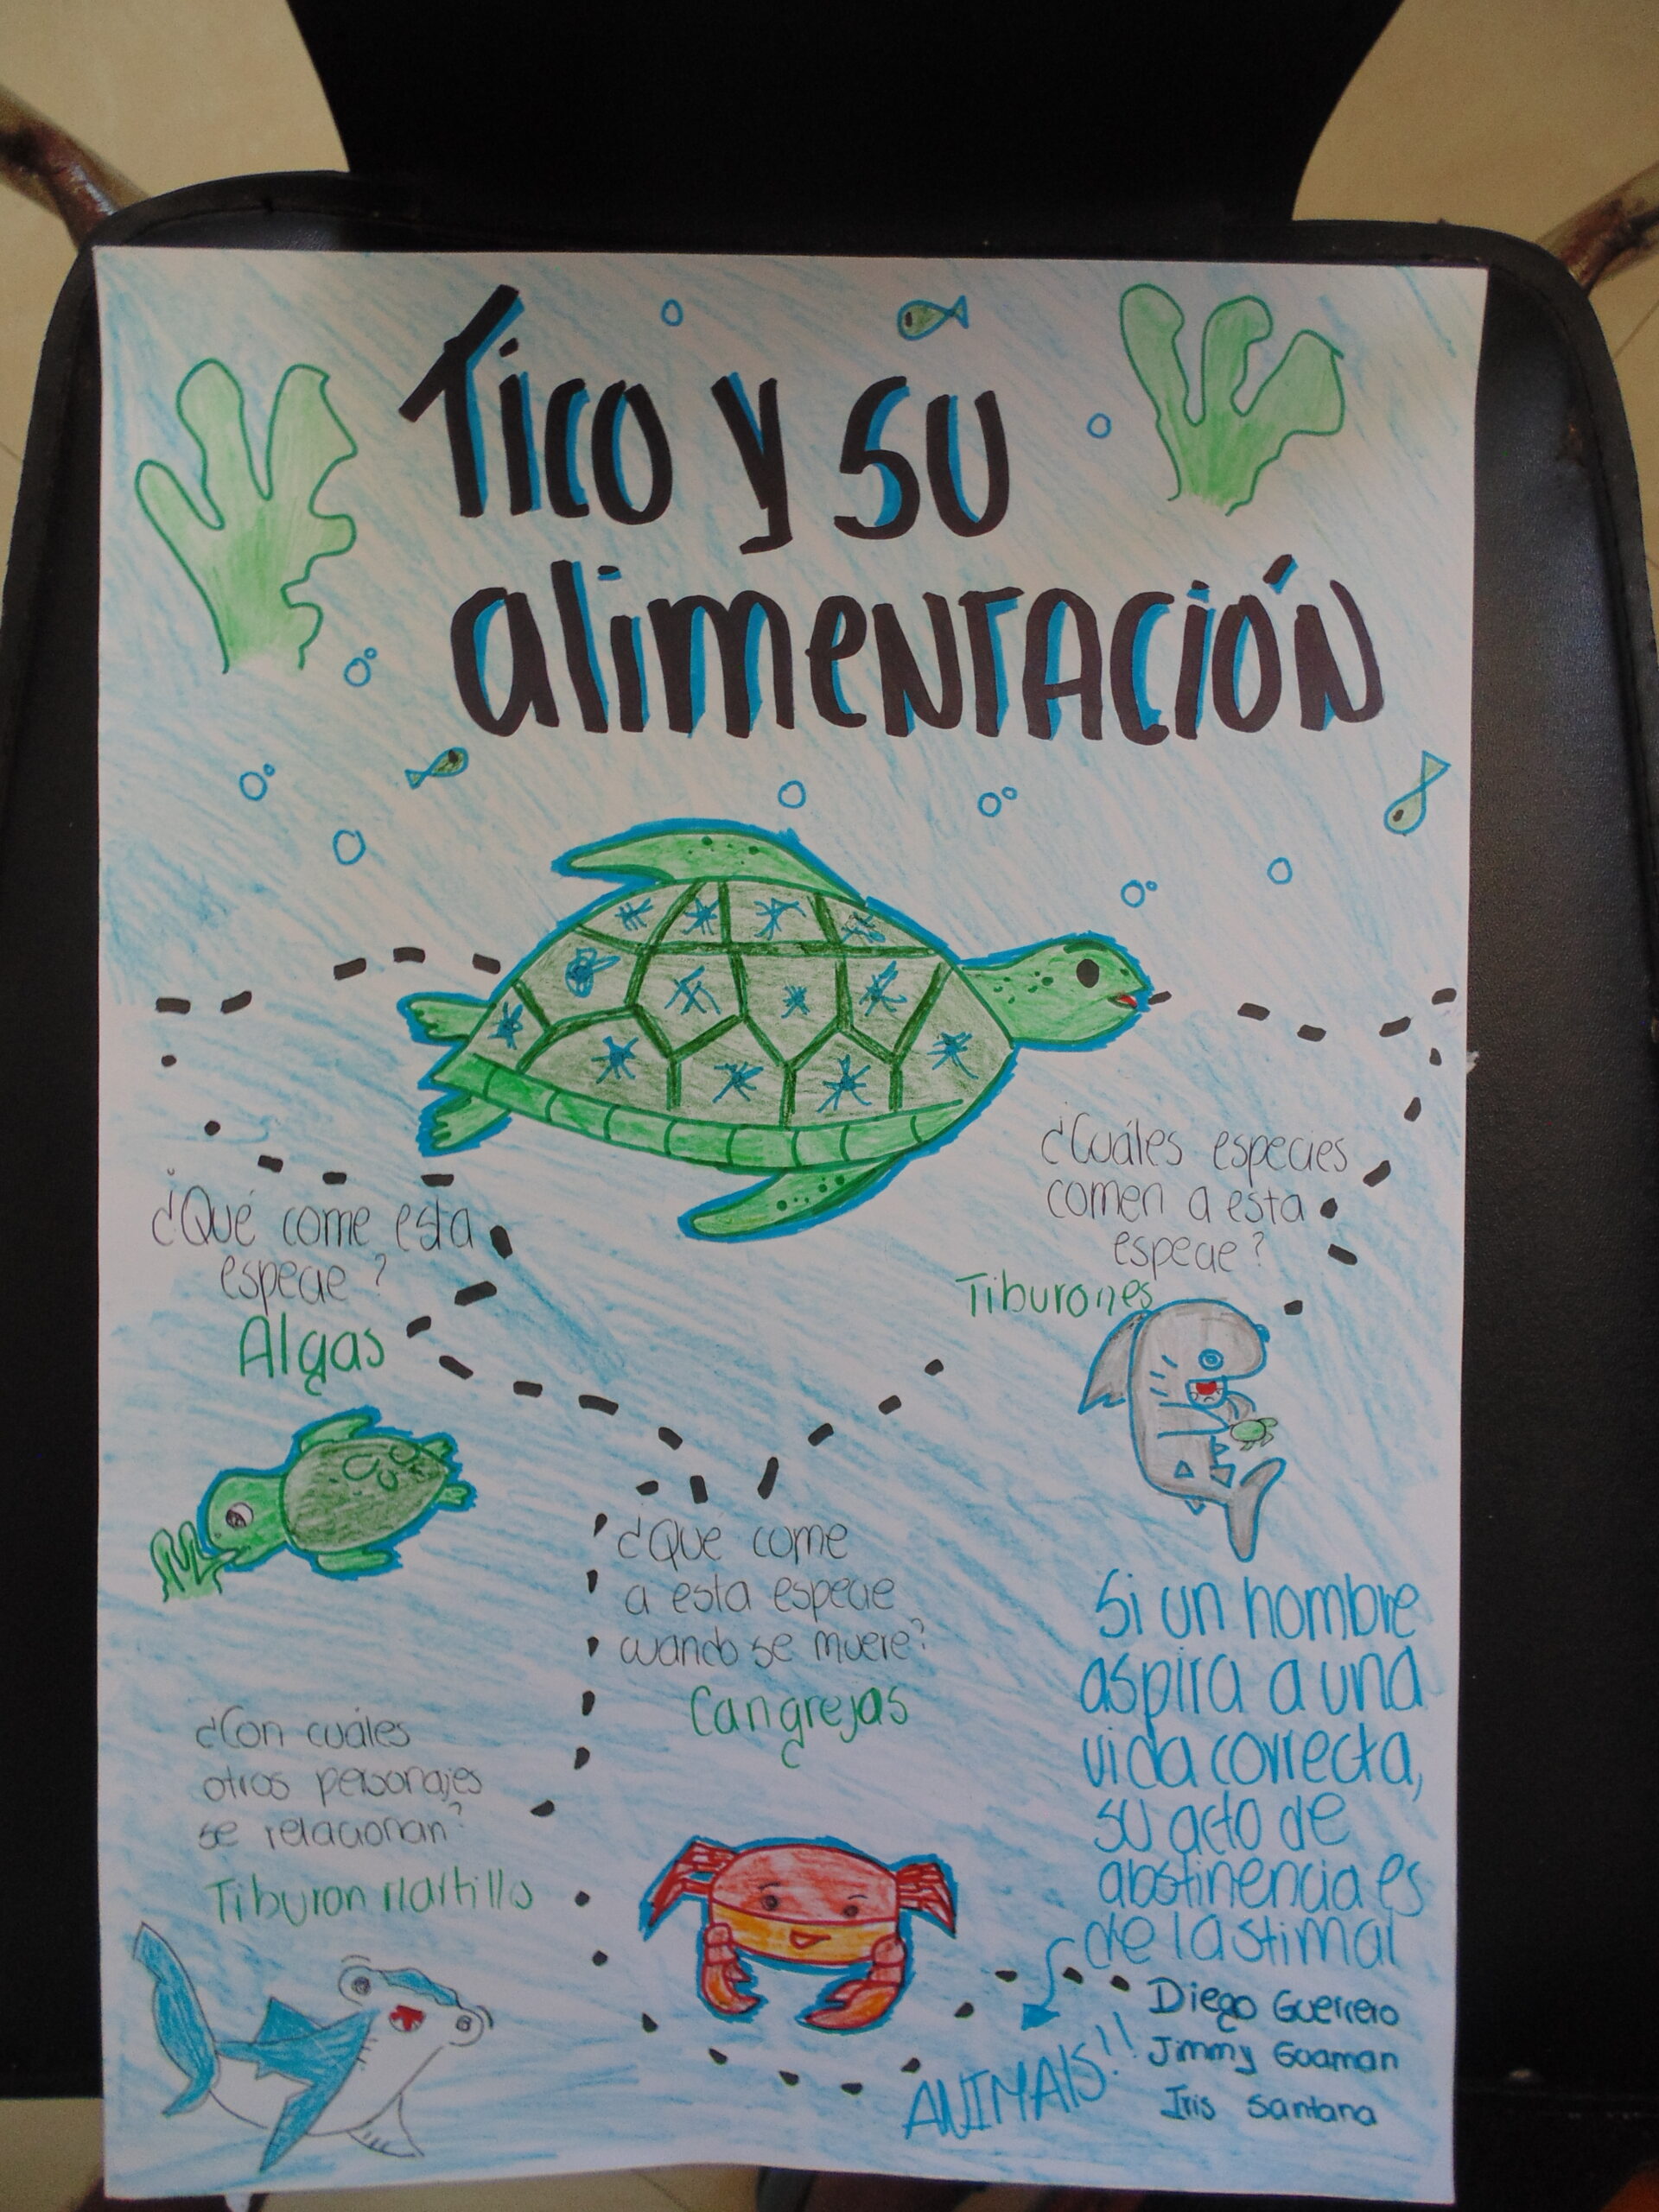 Tico y su
alimentación
¿Qué come esta
especie?
Algas
¿Cuáles especies
comen a esta
especie?
Tiburones
¿Que come
a esta especie
cuando se muere?
Cangrejas
¿Con cuáles
otros personajes
se relacionan?
Tiburon Martillo
Si un hombre
aspira a una
vida correcta,
su acto de
abstinencia es
de lastimal
ANIMAlS!!
Diego Guerrero
Jimmy Guaman
Iris Santana